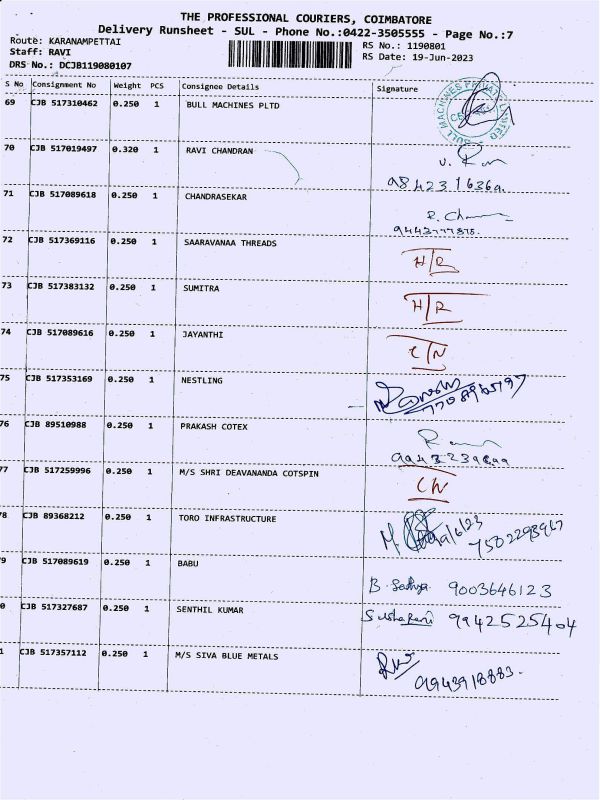 THE PROFESSIONAL COURIERS, COIMBATORE
Delivery Runsheet - SUL - Phone No.:0422-3505555 - Page No.:7
Route: KARANAMPETTAI
Staff: RAVI
DRS No.: DCJB119080107
RS No.: 1190801
RS Date: 19-Jun-2023
S No Consignment No Weight PCS Consignee Details Signature
69 CJB 517310462 0.250 1 BULL MACHINES PLTD
70 CJB 517019497 0.320 1 RAVI CHANDRAN
71 CJB 517089618 0.250 1 CHANDRASEKAR
72 CJB 517369116 0.250 1 SAARAVANAA THREADS H/R
73 CJB 517383132 0.250 1 SUMITRA H/R
74 CJB 517089616 0.250 1 JAYANTHI C/N
75 CJB 517353169 0.250 1 NESTLING
76 CJB 89510988 0.250 1 PRAKASH COTEX
77 CJB 517259996 0.250 1 M/S SHRI DEAVANANDA COTSPIN C/N
78 CJB 89368212 0.250 1 TORO INFRASTRUCTURE 7502293967
9 CJB 517089619 0.250 1 BABU B. Sathya 9003646123
0 CJB 517327687 0.250 1 SENTHIL KUMAR S. Usha Rani 9942525404
1 CJB 517357112 0.250 1 M/S SIVA BLUE METALS 9943918883.